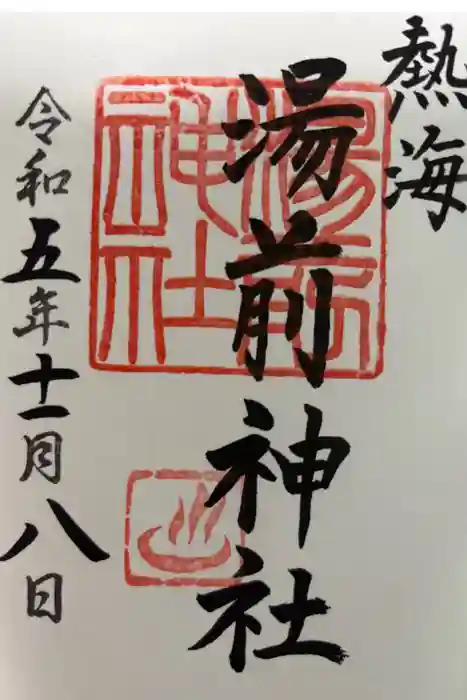 熱海
湯前神社
湯前
神社
令和五年十一月八日